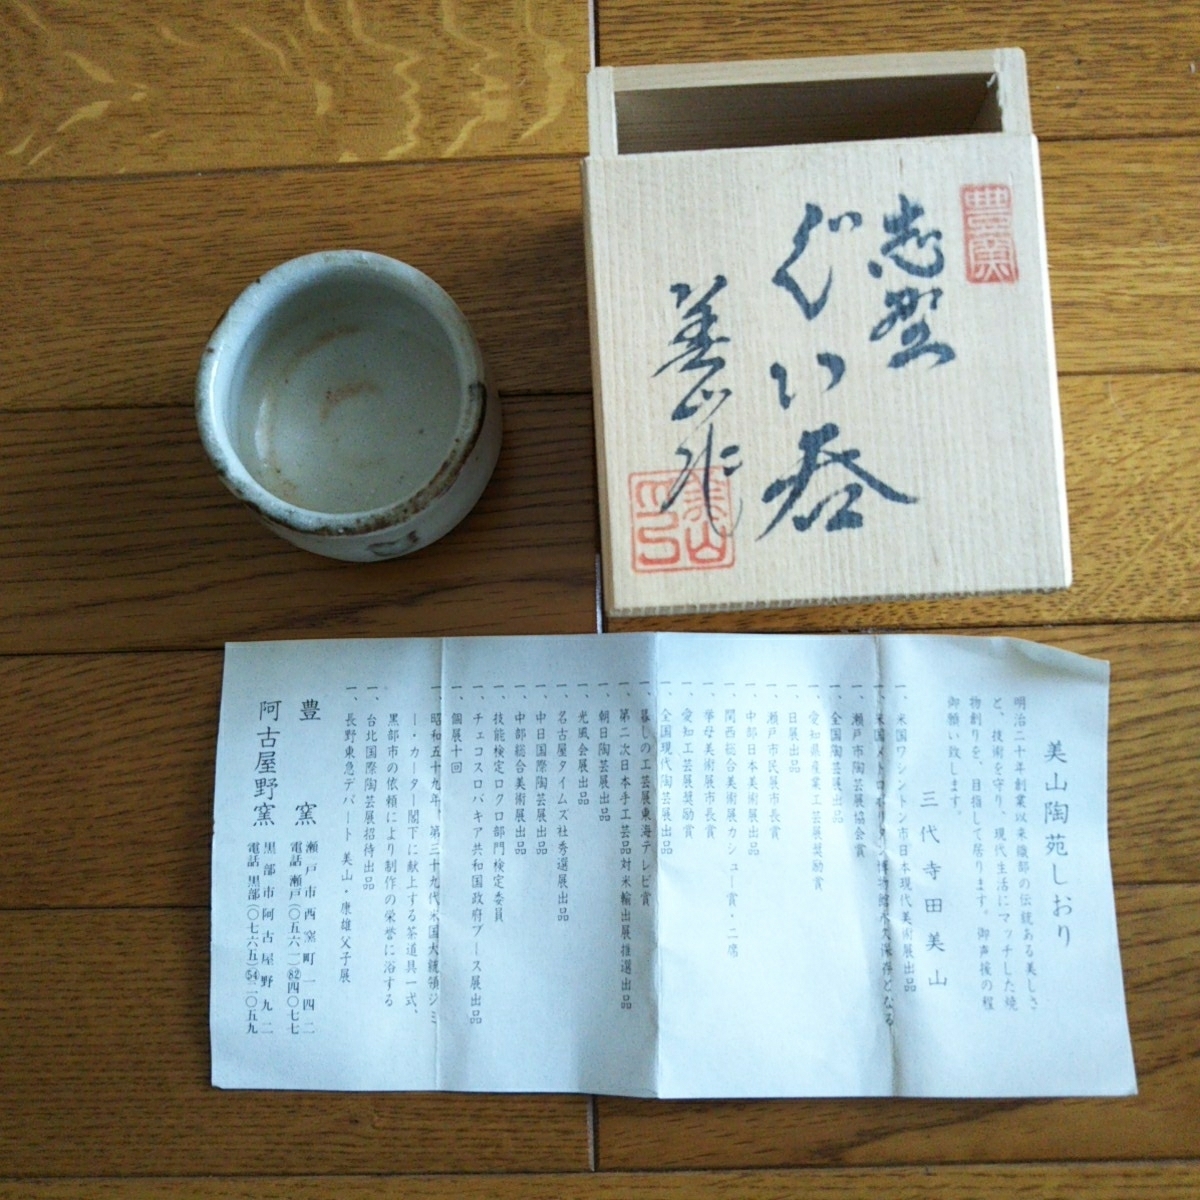 豊窯
志野
ぐい呑
美山作
美山
美山陶苑しおり
明治二十年創業以来織部の伝統ある美しさ
と、技術を守り、現代生活にマッチした焼
物創りを、目指して居ります。御声援の程
御願い致します。
三代寺田美山
一、米国ワシントン市日本現代美術展出品
一、米国メトロポリタン博物館永久保存となる
一、瀬戸市陶芸展協会賞
一、全国陶芸展出品
一、愛知県産業工芸展奨励賞
一、日展出品
一、瀬戸市民展市長賞
一、中部日本美術展出品
一、関西総合美術展カシュー賞・二席
一、挙母美術展市長賞
一、愛知工芸展奨励賞
一、全国現代陶芸展出品
一、暮しの工芸展東海テレビ賞
一、第二次日本手工芸品対米輸出展推選出品
一、朝日陶芸展出品
一、光風会展出品
一、名古屋タイムズ社秀選展出品
一、中日国際陶芸展出品
一、中部総合美術展出品
一、技能検定ロクロ部門検定委員
一、チェコスロバキア共和国政府ブース展出品
一、個展十回
一、昭和五十九年、第三十九代米国大統領ジミ
ー・カーター閣下に献上する茶道具一式、
黒部市の依頼により制作の栄誉に浴する
一、台北国際陶芸展招待出品
一、長野東急デパート 美山・康雄父子展
豊窯 瀬戸市西窯町一四二
電話 瀬戸(〇五六一)82四〇七七
阿古屋野窯 黒部市阿古屋野九二
電話 黒部(〇七六五)54一〇五九